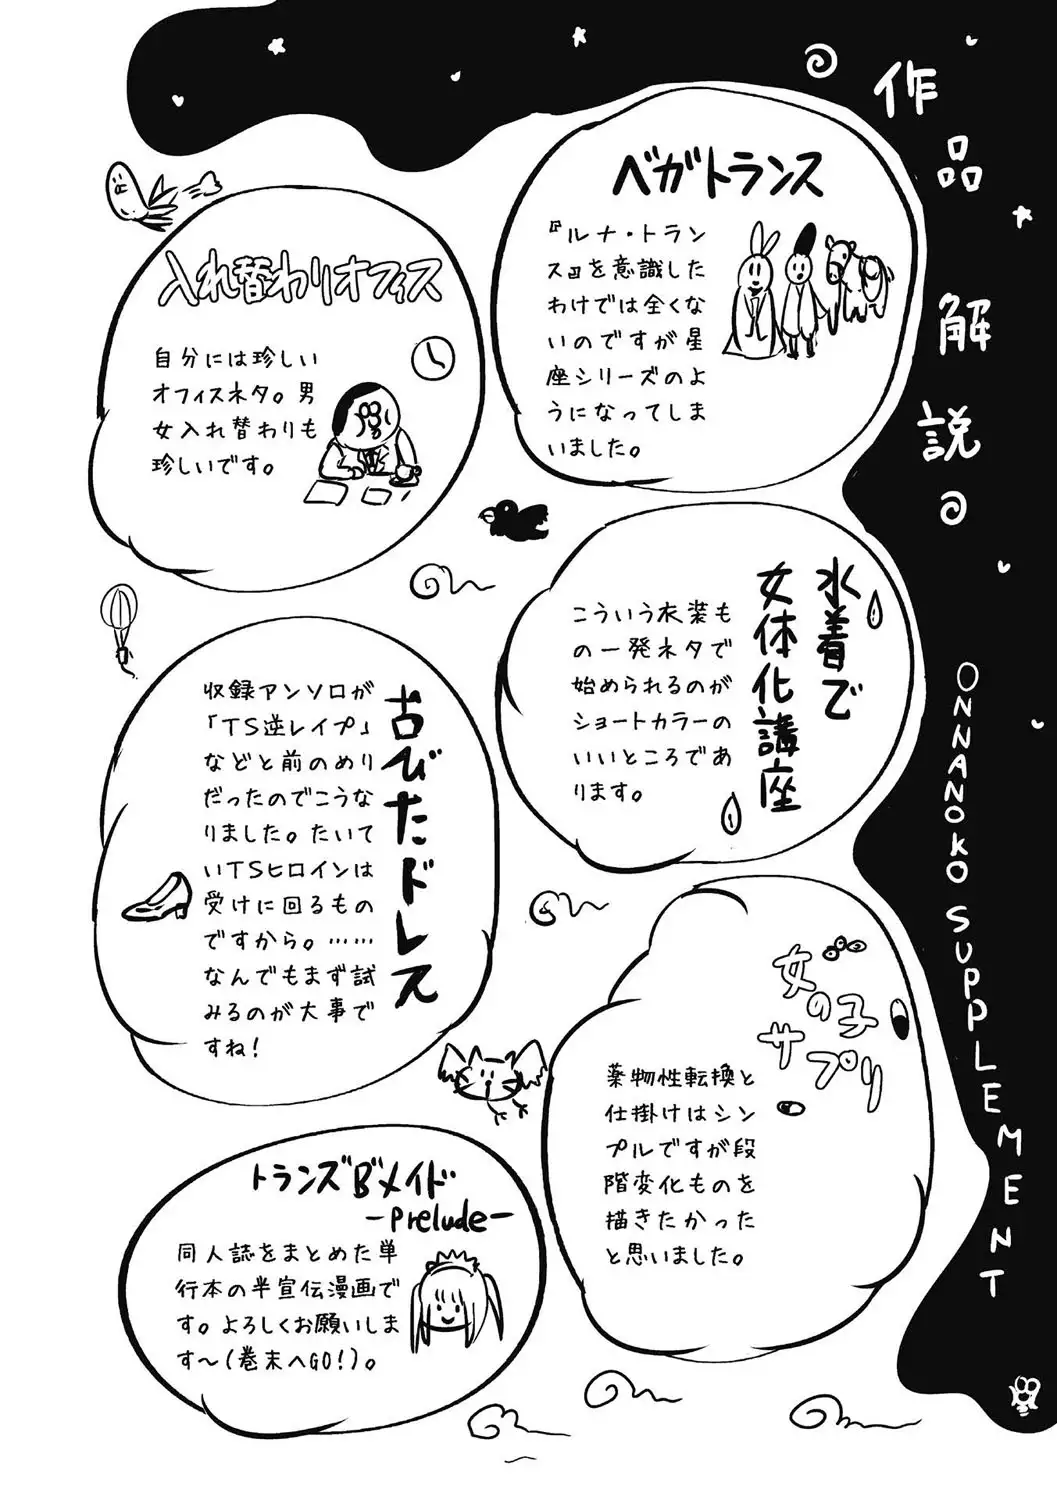 作品解説
ONNANOKO SUPPLEMENT
ベガトランス
『ルナ・トラン
ス』を意識した
わけでは全くな
いのですが星
座シリーズのよ
うになってしま
いました。
入れ替わりオフィス
自分には珍しい
オフィスネタ。男
女入れ替わりも
珍しいです。
水着で
女体化講座
こういう衣装も
の一発ネタで
始められるのが
ショートカラーの
いいところであ
ります。
古びたドレス
収録アンソロが
「TS逆レイプ」
などと前のめり
だったのでこうな
りました。たいて
いTSヒロインは
受けに回るもの
ですから。……
なんでもまず試
みるのが大事で
すね!
女の子
サプリ
薬物性転換と
仕掛けはシン
プルですが段
階変化ものを
描きたかった
と思いました。
トランズ"B"メイド
-Prelude-
同人誌をまとめた単
行本の半宣伝漫画で
す。よろしくお願いしま
す〜(巻末へGO!)。